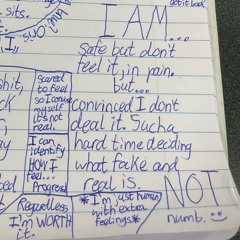 sits.
I AM...
got it back
Safe but don't
feel it, in pain.
but...
convinced I don't
deal it. Such a
hard time deciding
what fake and
real is.
NOT
numb.
scared
to feel
so I convince
myself
it's not
real.
I can
identify
HOW I
feel...
Progress
Regardless
I'm WORTH
it.
*I'm just human
with extra
feelings*